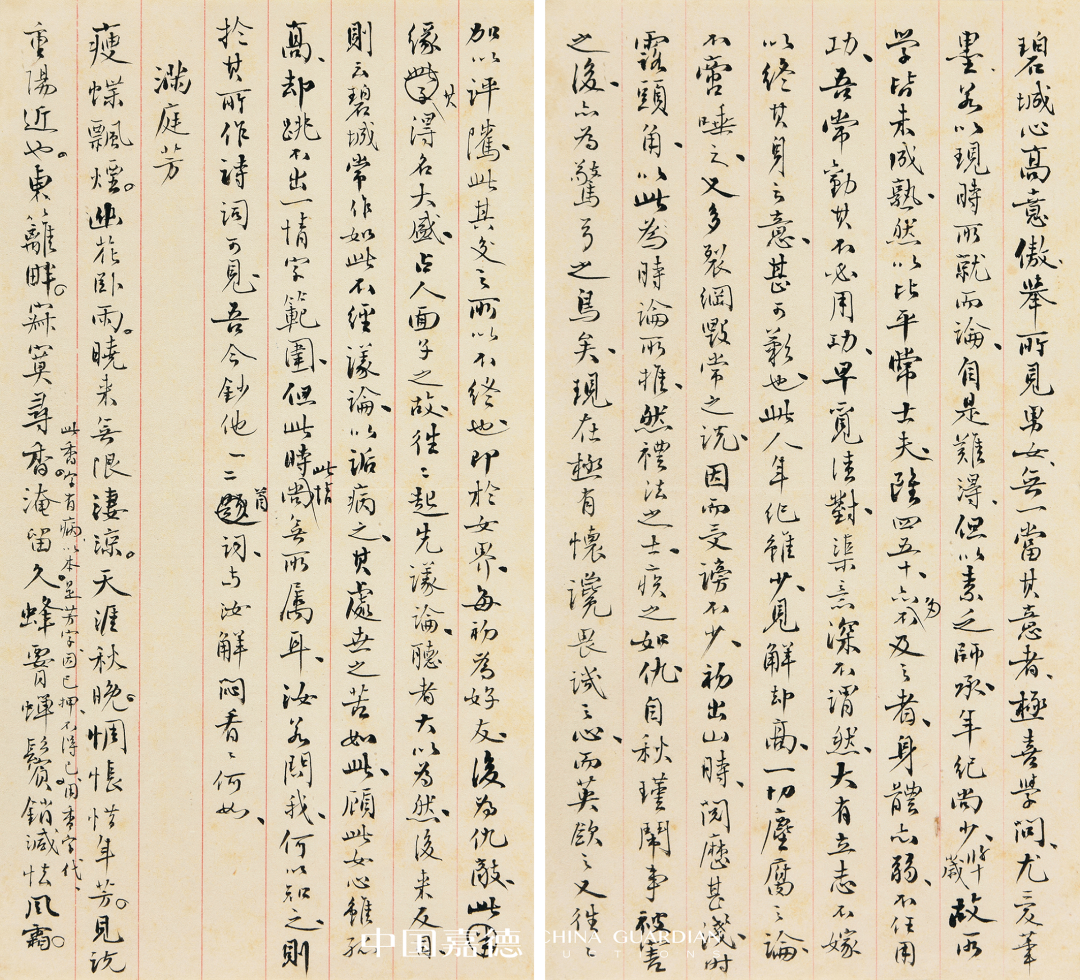 碧城心高意傲、舉所見男女、無一當其意者、極喜學問、尤愛筆
墨、若以現時所就而論、自是難得、但以素乏師承、年紀尚少、故所
学皆未成熟、然以比平常士夫、雖四五十、亦為不及之者、身體亦弱、不任用
功、吾常勸其不必用功、早覓佳對、渠意深不謂然、大有立志不嫁
以終其身之意、甚可歎也、此人年紀雖少、見解却高、一切塵腐之論
不啻唾之、又多裂綱毀常之說、因而受謗不少、初出山時、閱歷甚淺、時
露頭角、以此為時論所推、然禮法之士、疾之如仇、自秋瑾鬧事被害
之後、亦為驚弓之鳥矣、現在極有懷讒畏譏之心、而英歛之又往々
加以評騭、此其交之所以不終也、即於女界、每初為好友、後為仇敵、此
緣其得名大盛、占人面子之故、往々起先議論、聽者大以為然、後來反目、
則云碧城常作如此不經議論、以詬病之、其處世之苦如此、顧此女心雖孤
高、却跳不出一情字範圍、但此時此情尚無所屬耳、汝若問我、何以知之、則
於其所作詩詞可見、吾今鈔他一二首詞、与汝解悶看々何如、
滿庭芳
瘦蝶飄煙。幽花卧雨。曉来無限淒涼。天涯秋晚。惆悵惜年芳。見説
重陽近也。東籬畔。寂寞尋香淹留久。蜂霄蟬鬢銷減怯風霜。
此香字有病以本是芳字因已押、不得已用香字代、
中国嘉德 CHINA GUARDIAN
AUCTION